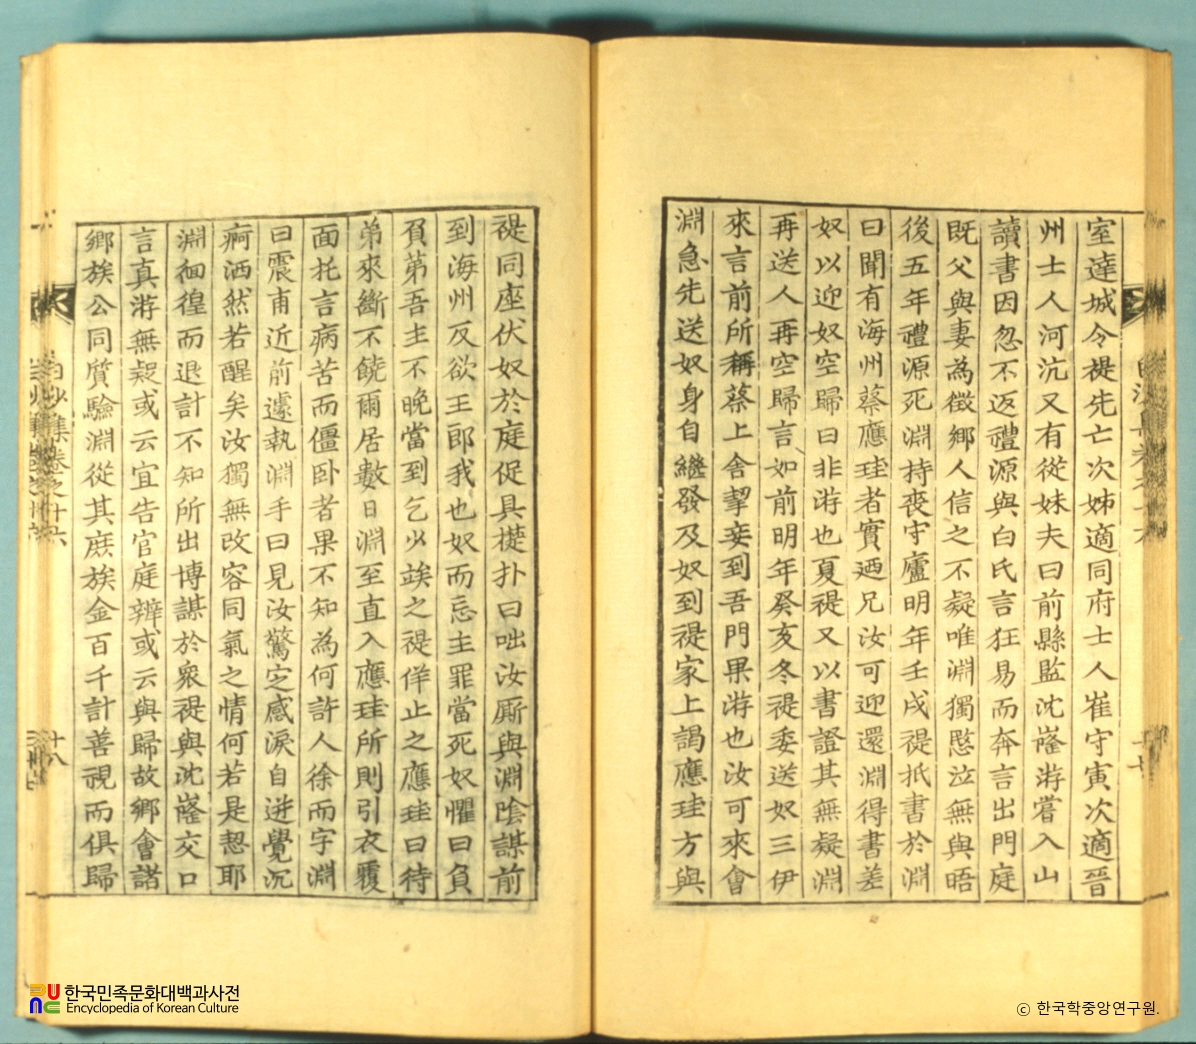 室達城令禔先亡次姊適同府士人崔守寅次適晋
州士人河沆又有從妹夫曰前縣監沈㟳游嘗入山
讀書因忽不返禮源與白氏言狂易而奔言出門庭
既父與妻為徵鄉人信之不疑唯淵獨愍泣無與晤
後五年禮源死淵持喪守廬明年壬戌禔抵書於淵
曰聞有海州蔡應珪者實迺兄汝可迎還淵得書差
奴以迎奴空歸曰非游也夏禔又以書證其無疑淵
再送人再空歸言如前明年癸亥冬禔委送奴三伊
來言前所稱蔡上舍挈妾到吾門果游也汝可來會
淵急先送奴身自繼發及奴到禔家上謁應珪方與
禔同座伏奴於庭促具檚扑曰咄汝厮與淵陰謀前
到海州反欲王郎我也奴而忘主罪當死奴懼曰負
負苐吾主不晚當到乞少竢之禔佯止之應珪曰待
弟來斷不饒爾居數日淵至直入應珪所則引衣覆
面托言病苦而僵卧者果不知為何許人徐而字淵
曰震甫近前遽執淵手曰見汝驚定感淚自迸覺沉
痾洒然若醒矣汝獨無改容同氣之情何若是恝耶
淵徊徨而退計不知所出博謀於衆禔與沈㟳交口
言真游無疑或云宜告官庭辨或云與歸故鄉會諸
鄉族公同質驗淵從其庻族金百千計善視而俱歸
白沙集卷之十六
十八
한국민족문화대백과사전
Encyclopedia of Korean Culture
ⓒ 한국학중앙연구원.